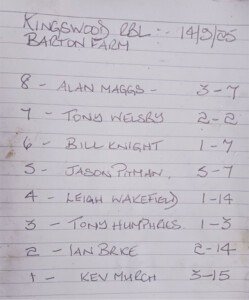 KINGSWOOD RBL :- 14/9/25
BARTON FARM
8 - ALAN MAGGS - 3-7
7 - TONY WELSBY 2-2
6 - BILL KNIGHT - 1-7
5 - JASON PITMAN, 5-7
4 - LEIGH WAKEFIELD 1-14
3 - TONY HUMPHRIES. 1-3
2 - IAN 2-14
1 - KEV MURCH 3-15